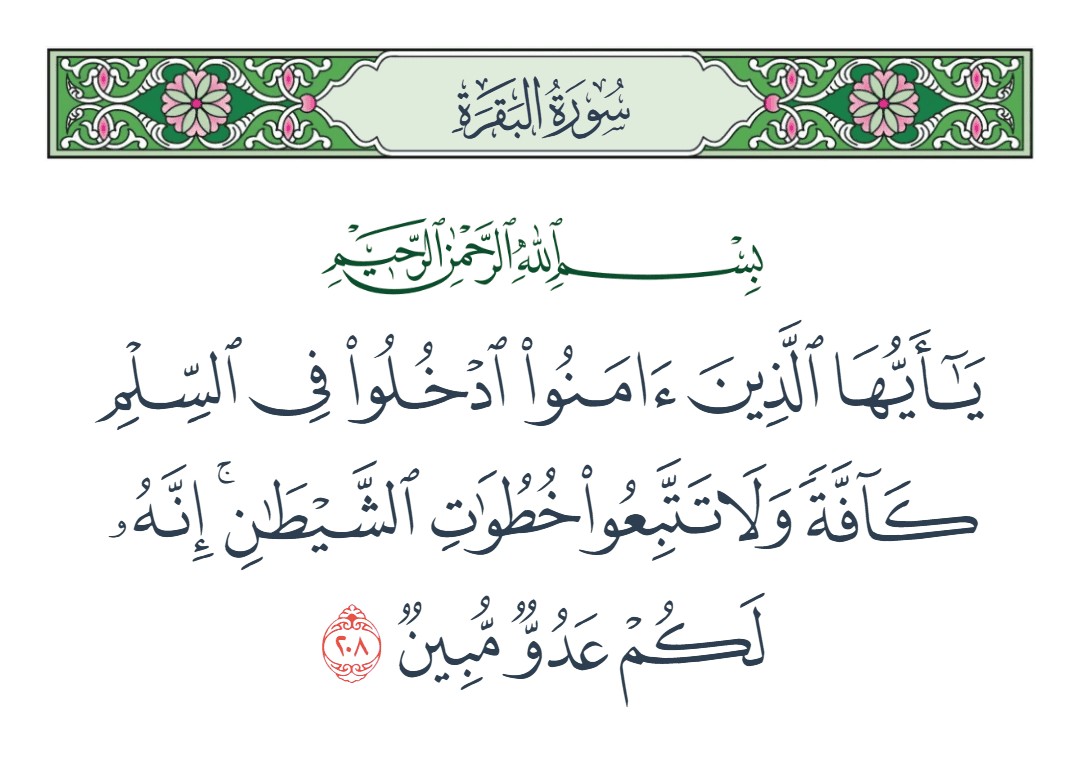 سُورَةُ البَقَرَةِ
بِسْمِ ٱللَّهِ ٱلرَّحْمَٰنِ ٱلرَّحِيمِ
يَـٰٓأَيُّهَا ٱلَّذِينَ ءَامَنُوا۟ ٱدْخُلُوا۟ فِى ٱلسِّلْمِ
كَآفَّةً وَلَا تَتَّبِعُوا۟ خُطُوَٰتِ ٱلشَّيْطَـٰنِ ۚ إِنَّهُۥ
لَكُمْ عَدُوٌّ مُّبِينٌ ٢٠٨